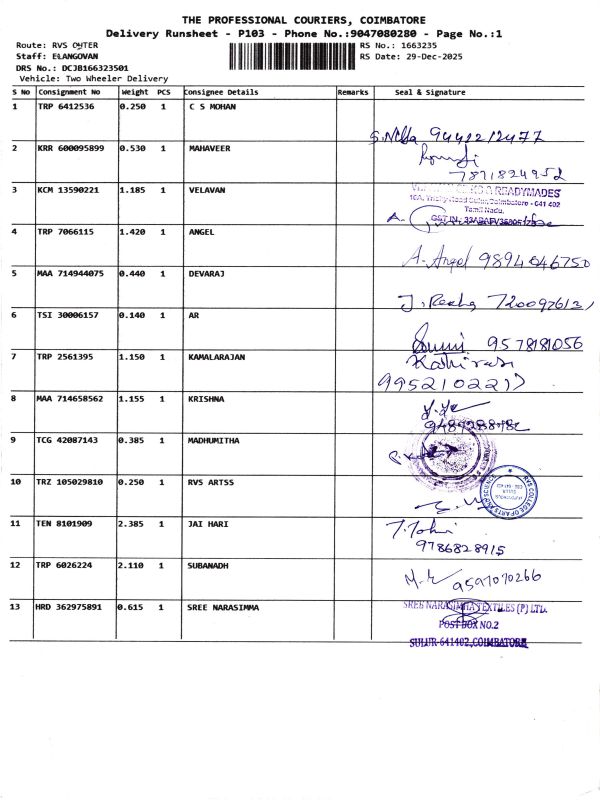 THE PROFESSIONAL COURIERS, COIMBATORE
Delivery Runsheet - P103 - Phone No.:9047080280 - Page No.:1
Route: RVS OUTER RS No.: 1663235
Staff: ELANGOVAN RS Date: 29-Dec-2025
DRS No.: DCJB166323501
Vehicle: Two Wheeler Delivery
S No Consignment No Weight PCS Consignee Details Remarks Seal & Signature
1 TRP 6412536 0.250 1 C S MOHAN
9441212477
2 KRR 600095899 0.530 1 MAHAVEER
7871824952
3 KCM 13590221 1.185 1 VELAVAN
READYMADES
Coimbatore - 641 402
Tamil Nadu.
4 TRP 7066115 1.420 1 ANGEL
A. Angel 9894046750
5 MAA 714944075 0.440 1 DEVARAJ
J. Rekha
6 TSI 30006157 0.140 1 AR
9578181056
7 TRP 2561395 1.150 1 KAMALARAJAN
Kathiravan
8 MAA 714658562 1.155 1 KRISHNA
9 TCG 42087143 0.385 1 MADHUMITHA
10 TRZ 105029810 0.250 1 RVS ARTSS
RVS COLLEGE OF ARTS AND SCIENCE
11 TEN 8101909 2.385 1 JAI HARI
9786828915
12 TRP 6026224 2.110 1 SUBANADH
9597070266
13 HRD 362975891 0.615 1 SREE NARASIMMA
SREE NARASIMHA TEXTILES (P) LTD.
POST BOX NO.2
SULUR-641402, COIMBATORE